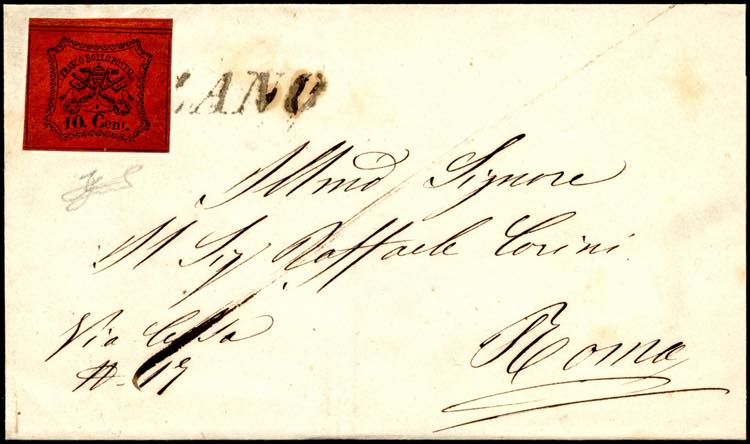 FRANCO BOLLO POSTALE
10. Cent.
ANO
Illmo Signore
Il Sig Raffaele Corini
Roma
Via
N. 19